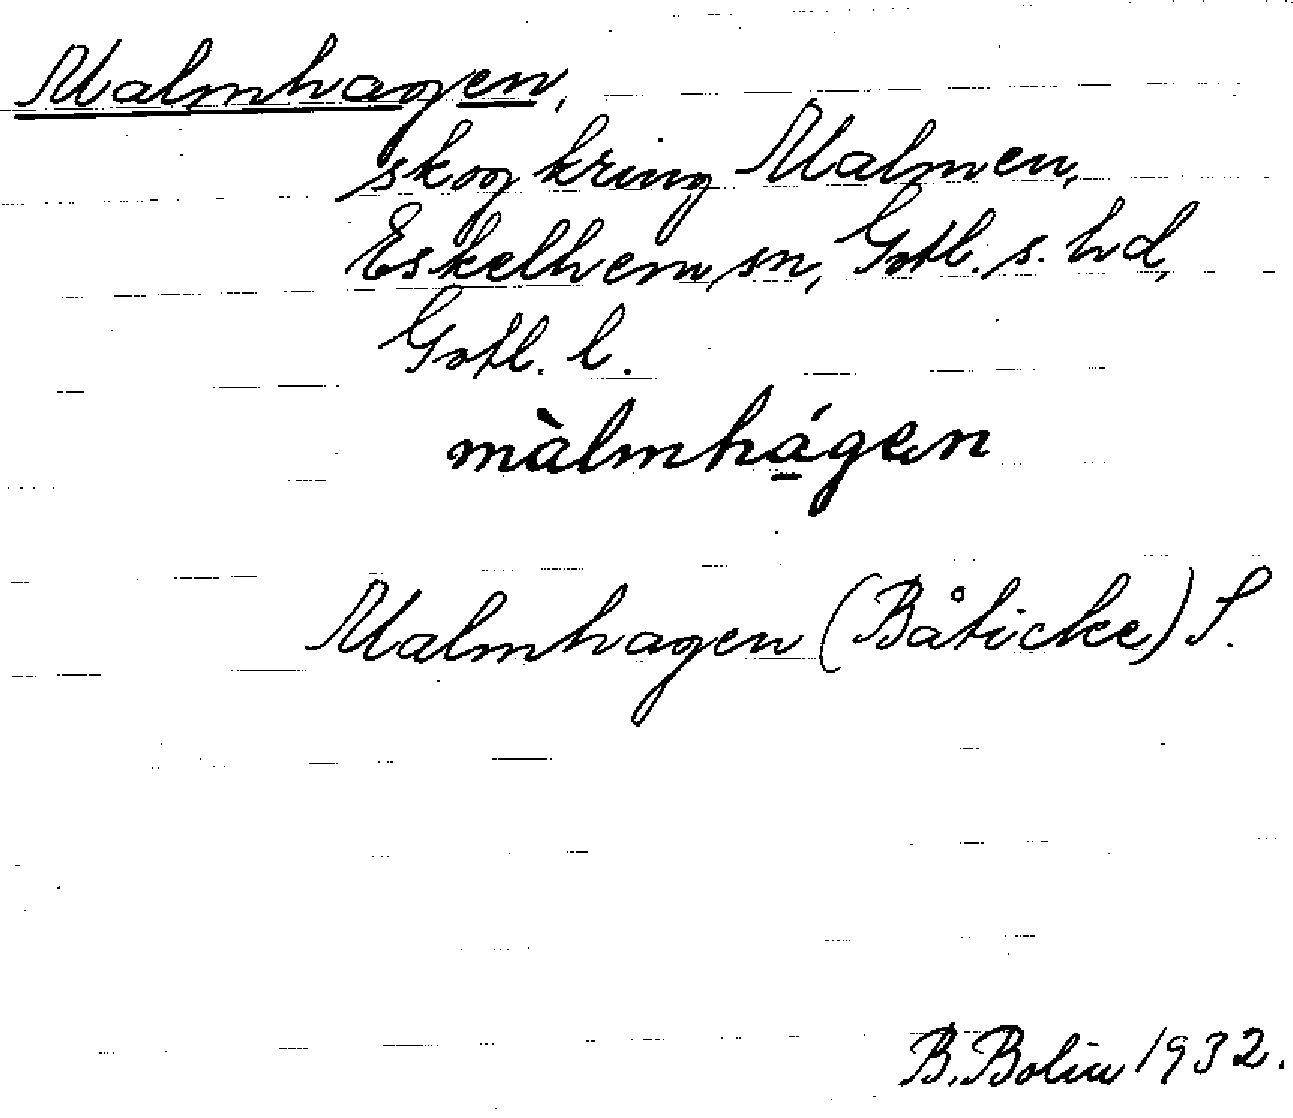 Malmhagen,
skog kring Malmen,
Eskelhem sn, Gotl. s. hd,
Gotl. l.
màlmhá̱gen
Malmhagen (Båticke) S.
B. Bolin 1932.